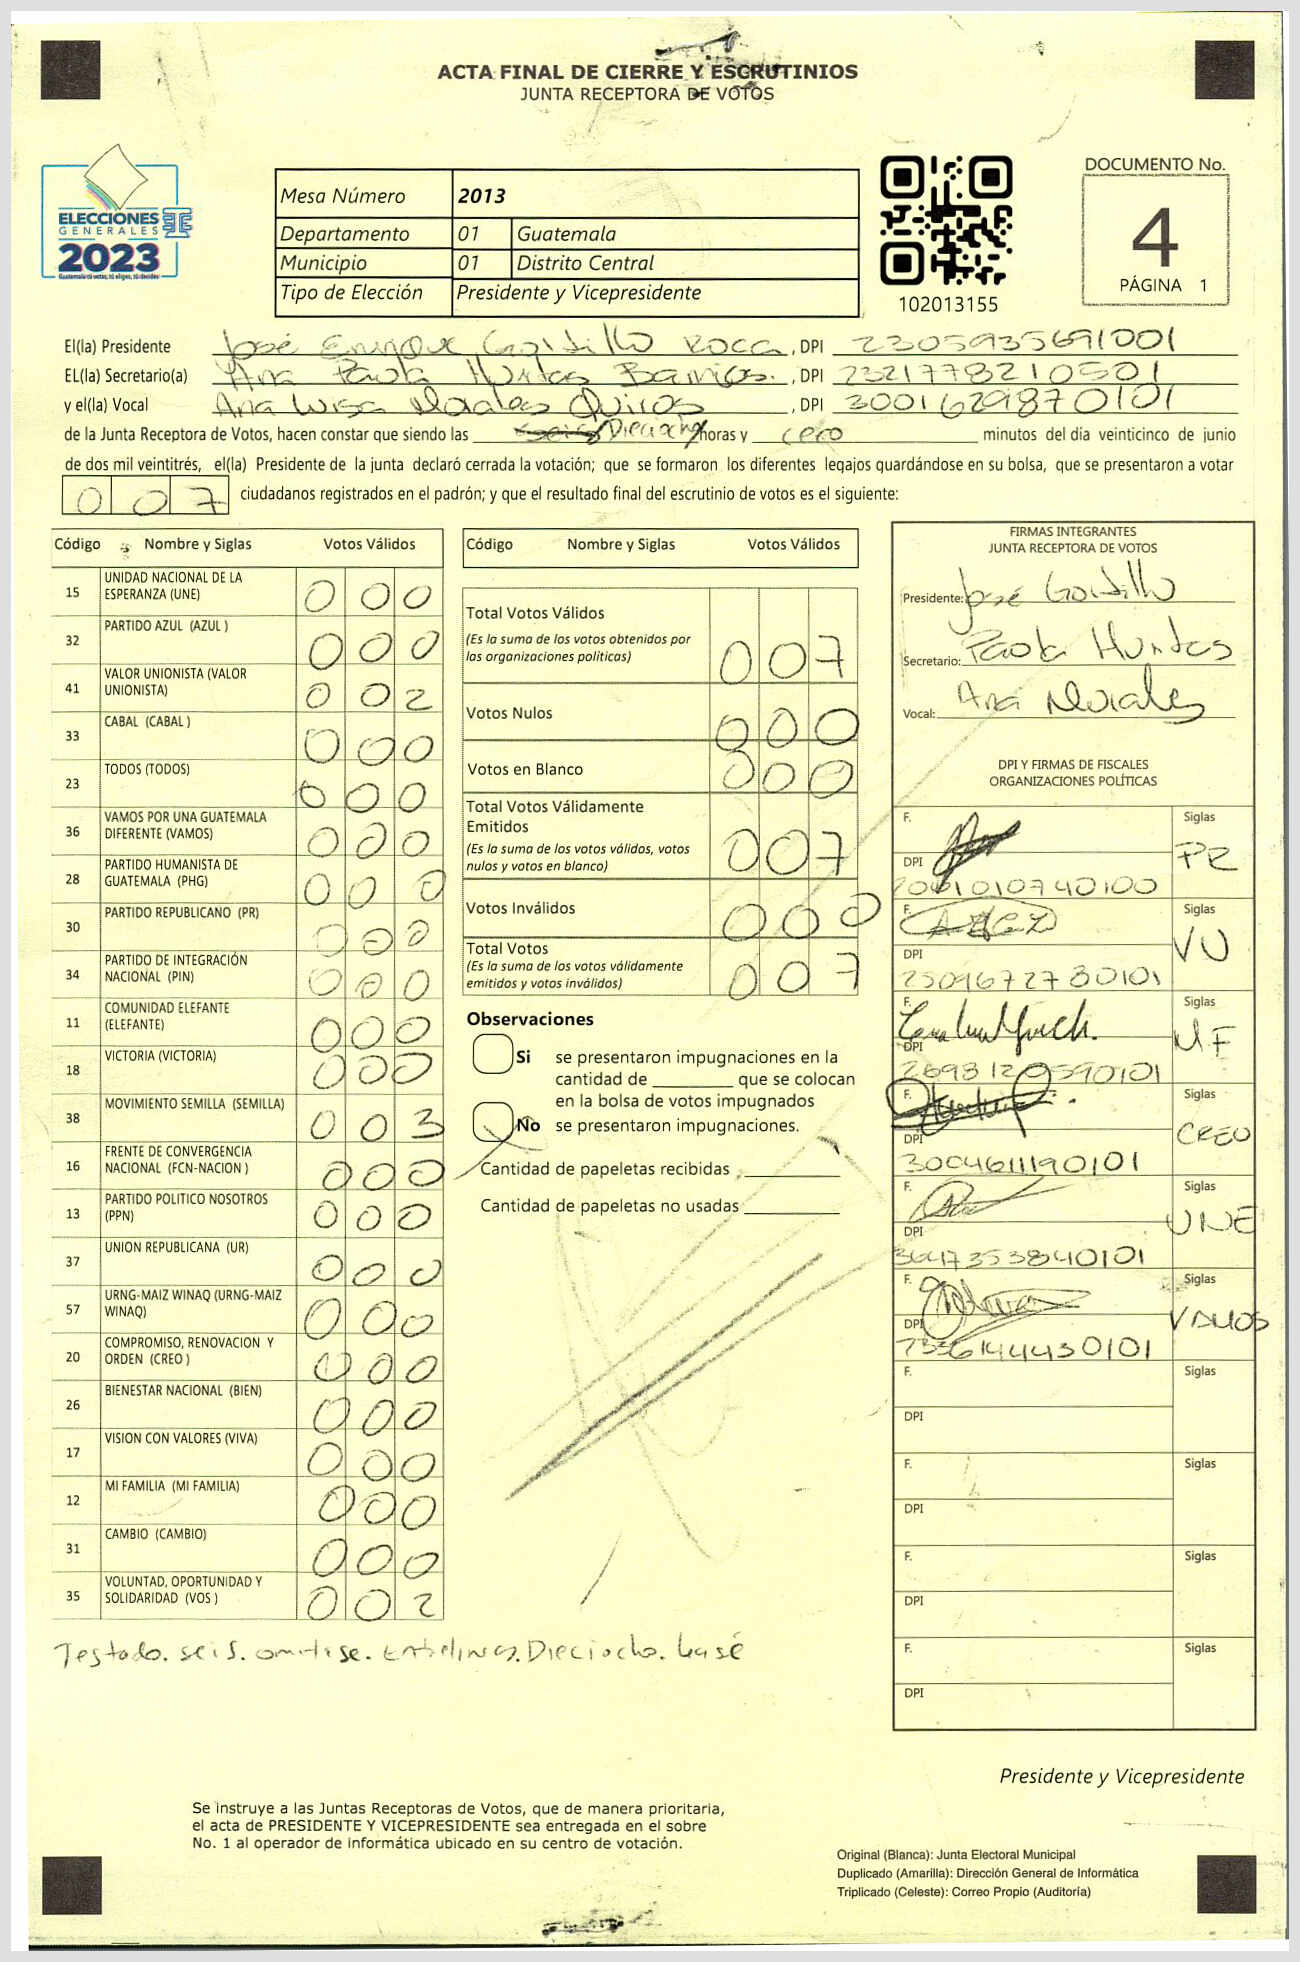 ACTA FINAL DE CIERRE Y ESCRUTINIOS
JUNTA RECEPTORA DE VOTOS
ELECCIONES
GENERALES
2023
Guatemala tú votas, tú eliges, tú decides
Mesa Número 2013
Departamento 01 Guatemala
Municipio 01 Distrito Central
Tipo de Elección Presidente y Vicepresidente
102013155
DOCUMENTO No.
4
PÁGINA 1
El(la) Presidente José Enrique Gordillo Roca, DPI 2305935691001
EL(la) Secretario(a) Ana Paola Barrios., DPI 2321778210501
y el(la) Vocal Ana Luisa Morales Quiros, DPI 3001629870101
de la Junta Receptora de Votos, hacen constar que siendo las seis Dieciocho horas y cero minutos del día veinticinco de junio
de dos mil veintitrés, el(la) Presidente de la junta declaró cerrada la votación; que se formaron los diferentes legajos quardándose en su bolsa, que se presentaron a votar
007 ciudadanos registrados en el padrón; y que el resultado final del escrutinio de votos es el siguiente:
Código Nombre y Siglas Votos Válidos
15 UNIDAD NACIONAL DE LA ESPERANZA (UNE) 0 0 0
32 PARTIDO AZUL (AZUL ) 0 0 0
41 VALOR UNIONISTA (VALOR UNIONISTA) 0 0 2
33 CABAL (CABAL ) 0 0 0
23 TODOS (TODOS) 0 0 0
36 VAMOS POR UNA GUATEMALA DIFERENTE (VAMOS) 0 0 0
28 PARTIDO HUMANISTA DE GUATEMALA (PHG) 0 0 0
30 PARTIDO REPUBLICANO (PR) 0 0 0
34 PARTIDO DE INTEGRACIÓN NACIONAL (PIN) 0 0 0
11 COMUNIDAD ELEFANTE (ELEFANTE) 0 0 0
18 VICTORIA (VICTORIA) 0 0 0
38 MOVIMIENTO SEMILLA (SEMILLA) 0 0 3
16 FRENTE DE CONVERGENCIA NACIONAL (FCN-NACION ) 0 0 0
13 PARTIDO POLITICO NOSOTROS (PPN) 0 0 0
37 UNION REPUBLICANA (UR) 0 0 0
57 URNG-MAIZ WINAQ (URNG-MAIZ WINAQ) 0 0 0
20 COMPROMISO, RENOVACION Y ORDEN (CREO ) 0 0 0
26 BIENESTAR NACIONAL (BIEN) 0 0 0
17 VISION CON VALORES (VIVA) 0 0 0
12 MI FAMILIA (MI FAMILIA) 0 0 0
31 CAMBIO (CAMBIO) 0 0 0
35 VOLUNTAD, OPORTUNIDAD Y SOLIDARIDAD (VOS ) 0 0 2
Testado. seis. omitase. Entrelineas. Dieciocho. Lease
Código Nombre y Siglas Votos Válidos
Total Votos Válidos 0 0 7
(Es la suma de los votos obtenidos por
las organizaciones políticas)
Votos Nulos 0 0 0
Votos en Blanco 0 0 0
Total Votos Válidamente
Emitidos 0 0 7
(Es la suma de los votos válidos, votos
nulos y votos en blanco)
Votos Inválidos 0 0 0
Total Votos 0 0 7
(Es la suma de los votos válidamente
emitidos y votos inválidos)
Observaciones
Si se presentaron impugnaciones en la
cantidad de ________ que se colocan
en la bolsa de votos impugnados
No se presentaron impugnaciones.
Cantidad de papeletas recibidas
Cantidad de papeletas no usadas
FIRMAS INTEGRANTES
JUNTA RECEPTORA DE VOTOS
Presidente: José Gordillo
Secretario: Paola
Vocal: Ana Morales
DPI Y FIRMAS DE FISCALES
ORGANIZACIONES POLÍTICAS
F. Siglas PR
DPI
F. Siglas VU
DPI 2509672730101
F. Siglas MF
DPI 2698120590101
F. Siglas CREO
DPI 3004611190101
F. Siglas UNE
DPI 3647353840101
F. Siglas VAMOS
DPI
F. Siglas
DPI
F. Siglas
DPI
F. Siglas
DPI
F. Siglas
DPI
Presidente y Vicepresidente
Se instruye a las Juntas Receptoras de Votos, que de manera prioritaria,
el acta de PRESIDENTE Y VICEPRESIDENTE sea entregada en el sobre
No. 1 al operador de informática ubicado en su centro de votación.
Original (Blanca): Junta Electoral Municipal
Duplicado (Amarilla): Dirección General de Informática
Triplicado (Celeste): Correo Propio (Auditoría)